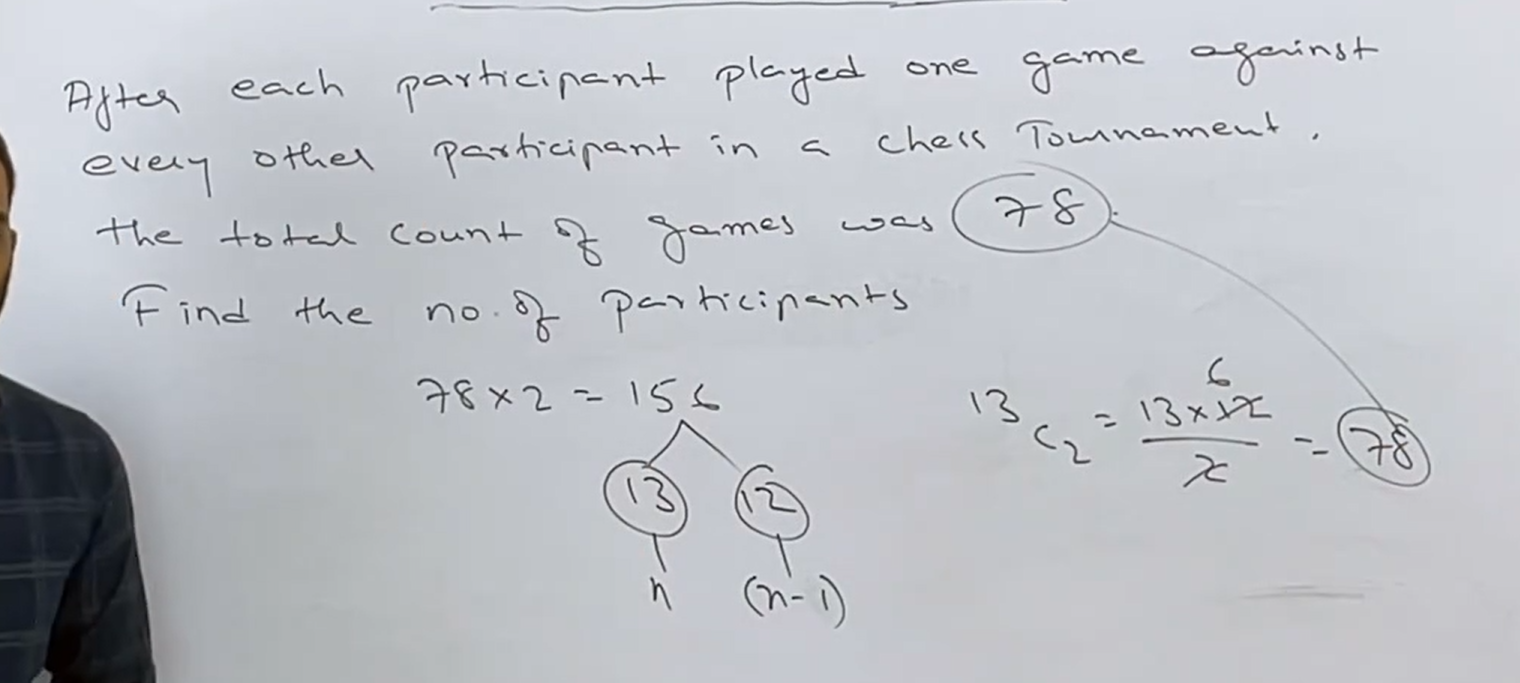 After each participant played one game against
every other participant in a chess Tournament.
the total count of games was 78
Find the no. of participants
78 × 2 = 156
13 12
n (n-1)
6
13C2 = 13 × 12 / 2 = 78